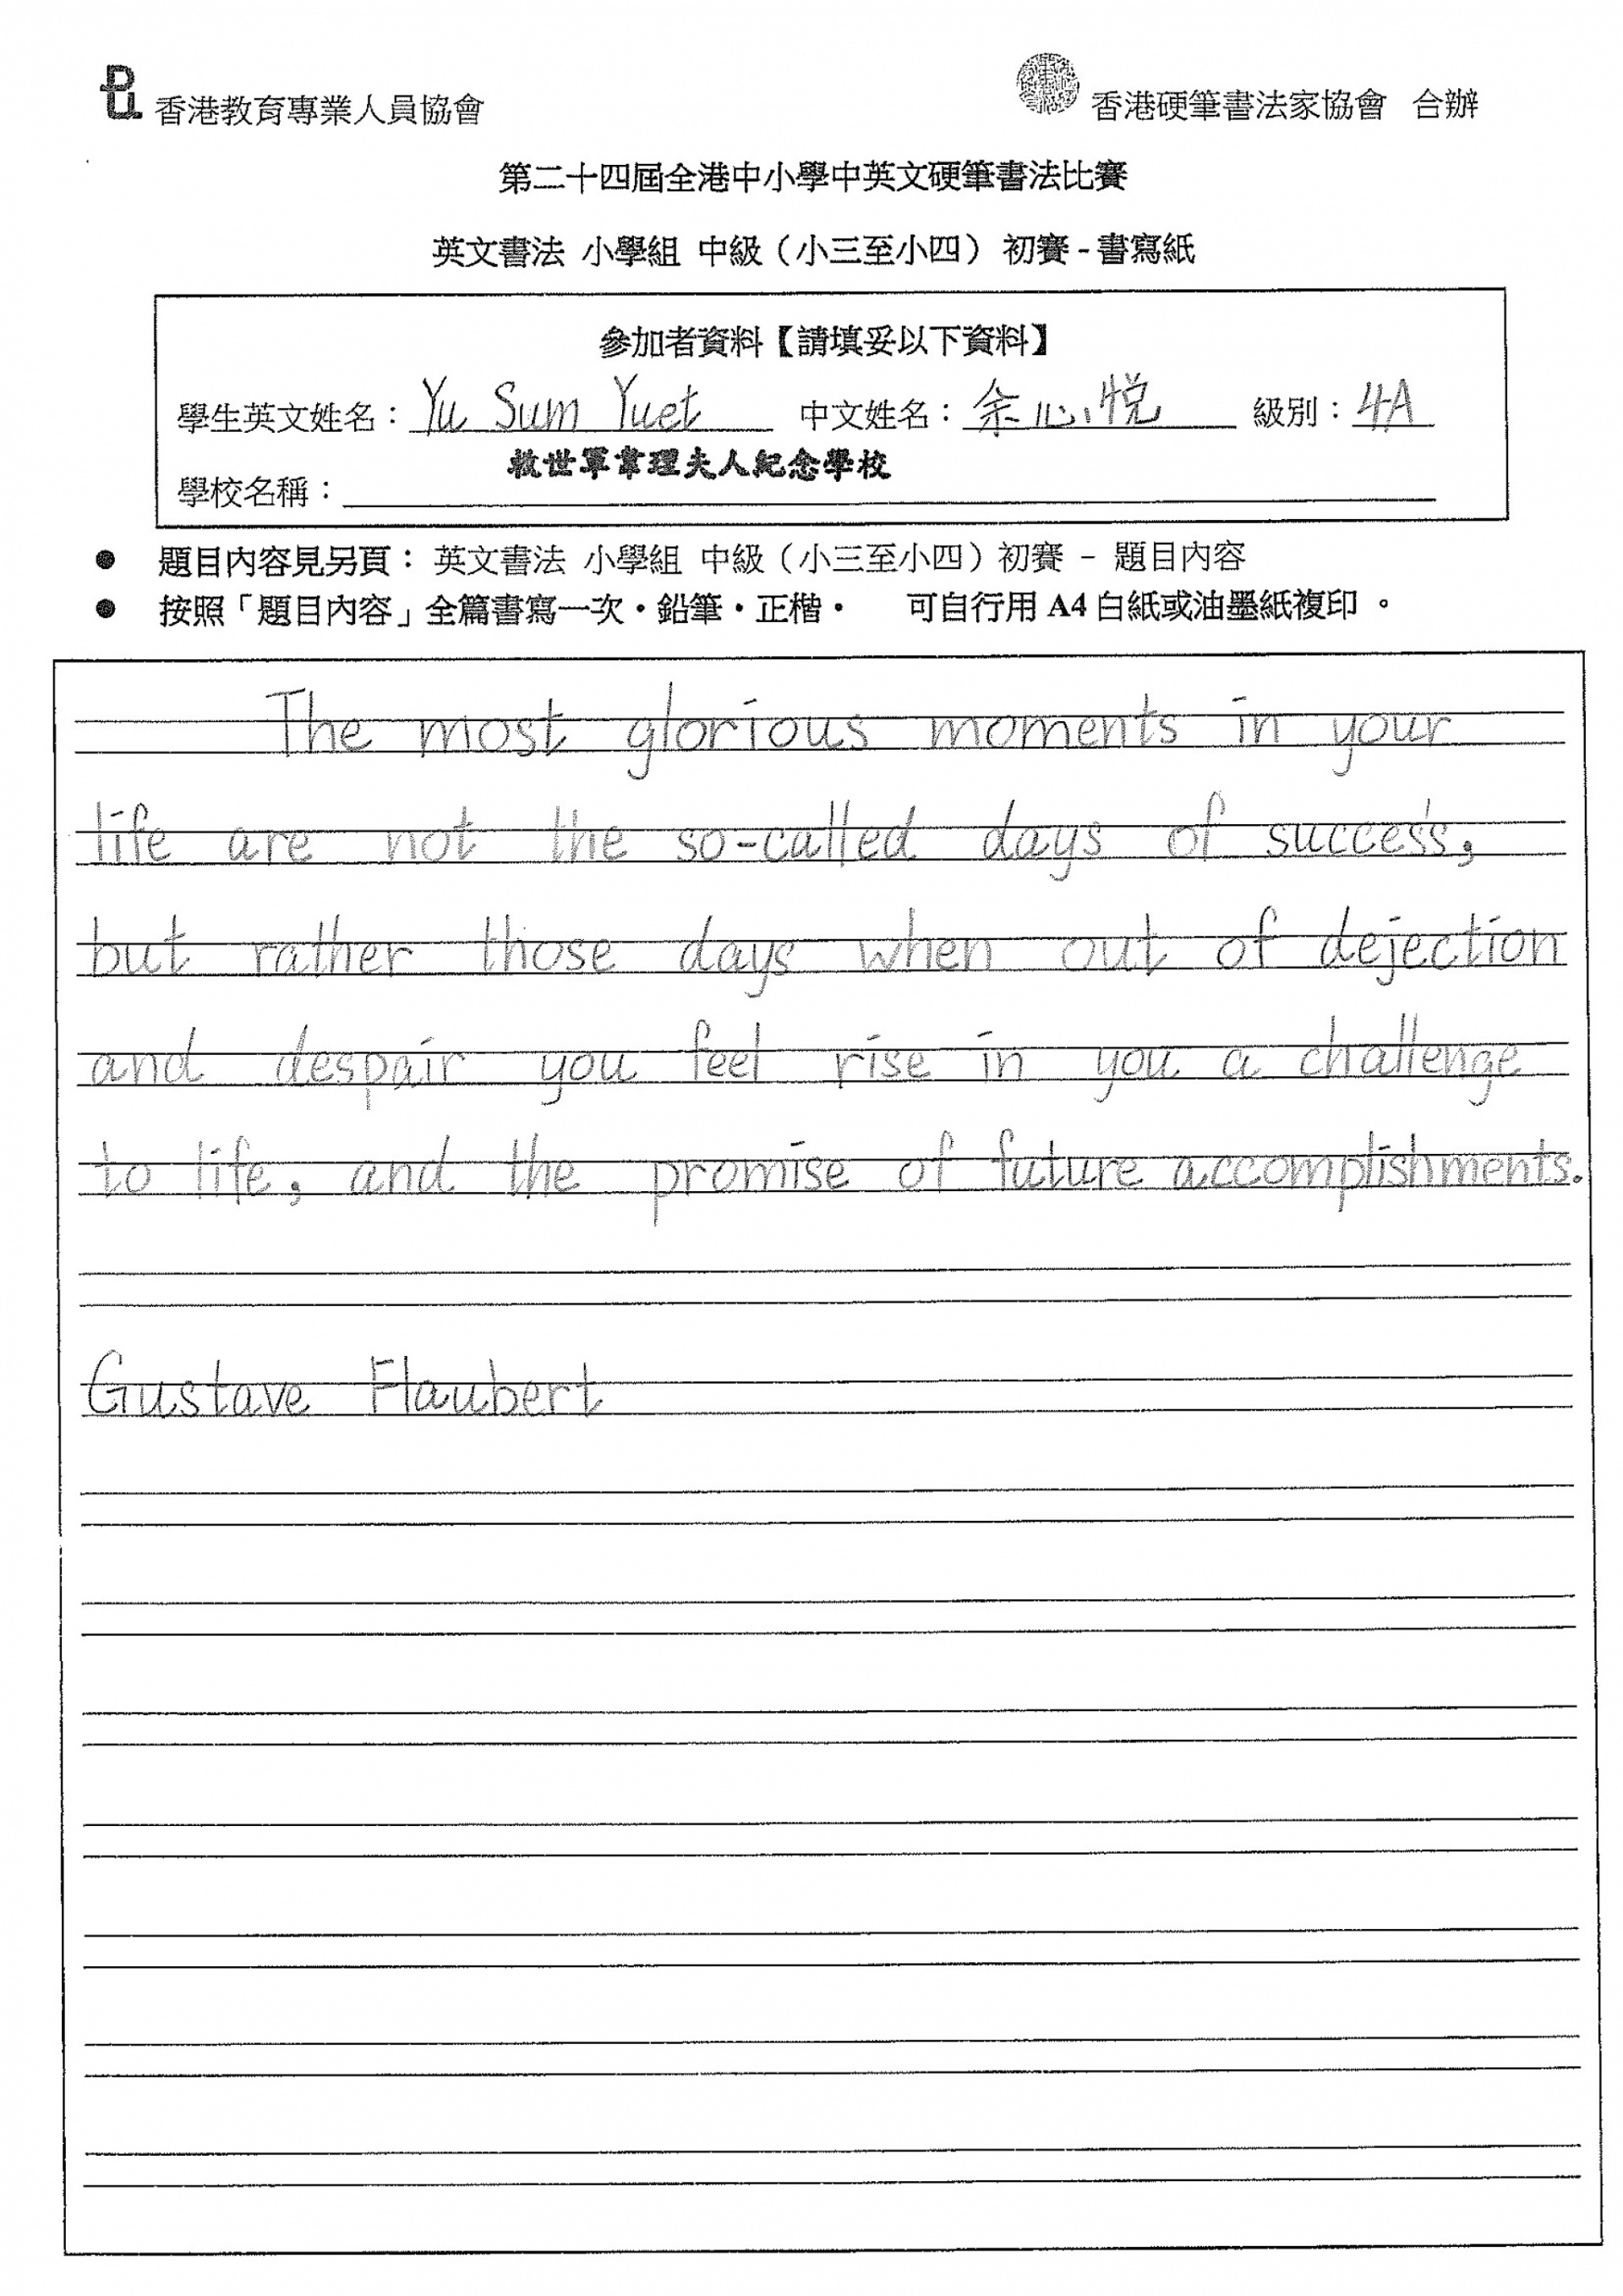 香港教育專業人員協會
香港硬筆書法家協會 合辦
第二十四屆全港中小學中英文硬筆書法比賽
英文書法 小學組 中級（小三至小四） 初賽 - 書寫紙
參加者資料【請填妥以下資料】
學生英文姓名：Yu Sum Yuet 中文姓名：余心悅 級別：4A
學校名稱：救世軍韋理夫人紀念學校
● 題目內容見另頁： 英文書法 小學組 中級（小三至小四）初賽 － 題目內容
● 按照「題目內容」全篇書寫一次‧鉛筆‧正楷‧ 可自行用 A4 白紙或油墨紙複印 。
The most glorious moments in your
life are not the so-called days of success,
but rather those days when out of dejection
and despair you feel rise in you a challenge
to life, and the promise of future accomplishments.
Gustave Flaubert